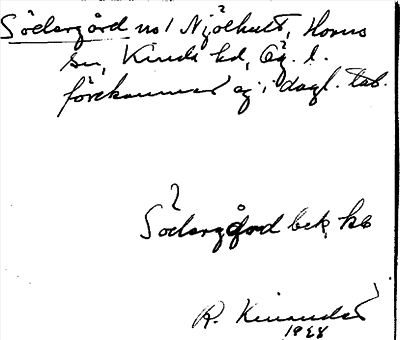 Södergård no 1 Njölhult, Horns
sn, Kinda hd, Ög. l.
förekommer ej i dagl. tal.
?
Södergård bek. hs
R. Kinander